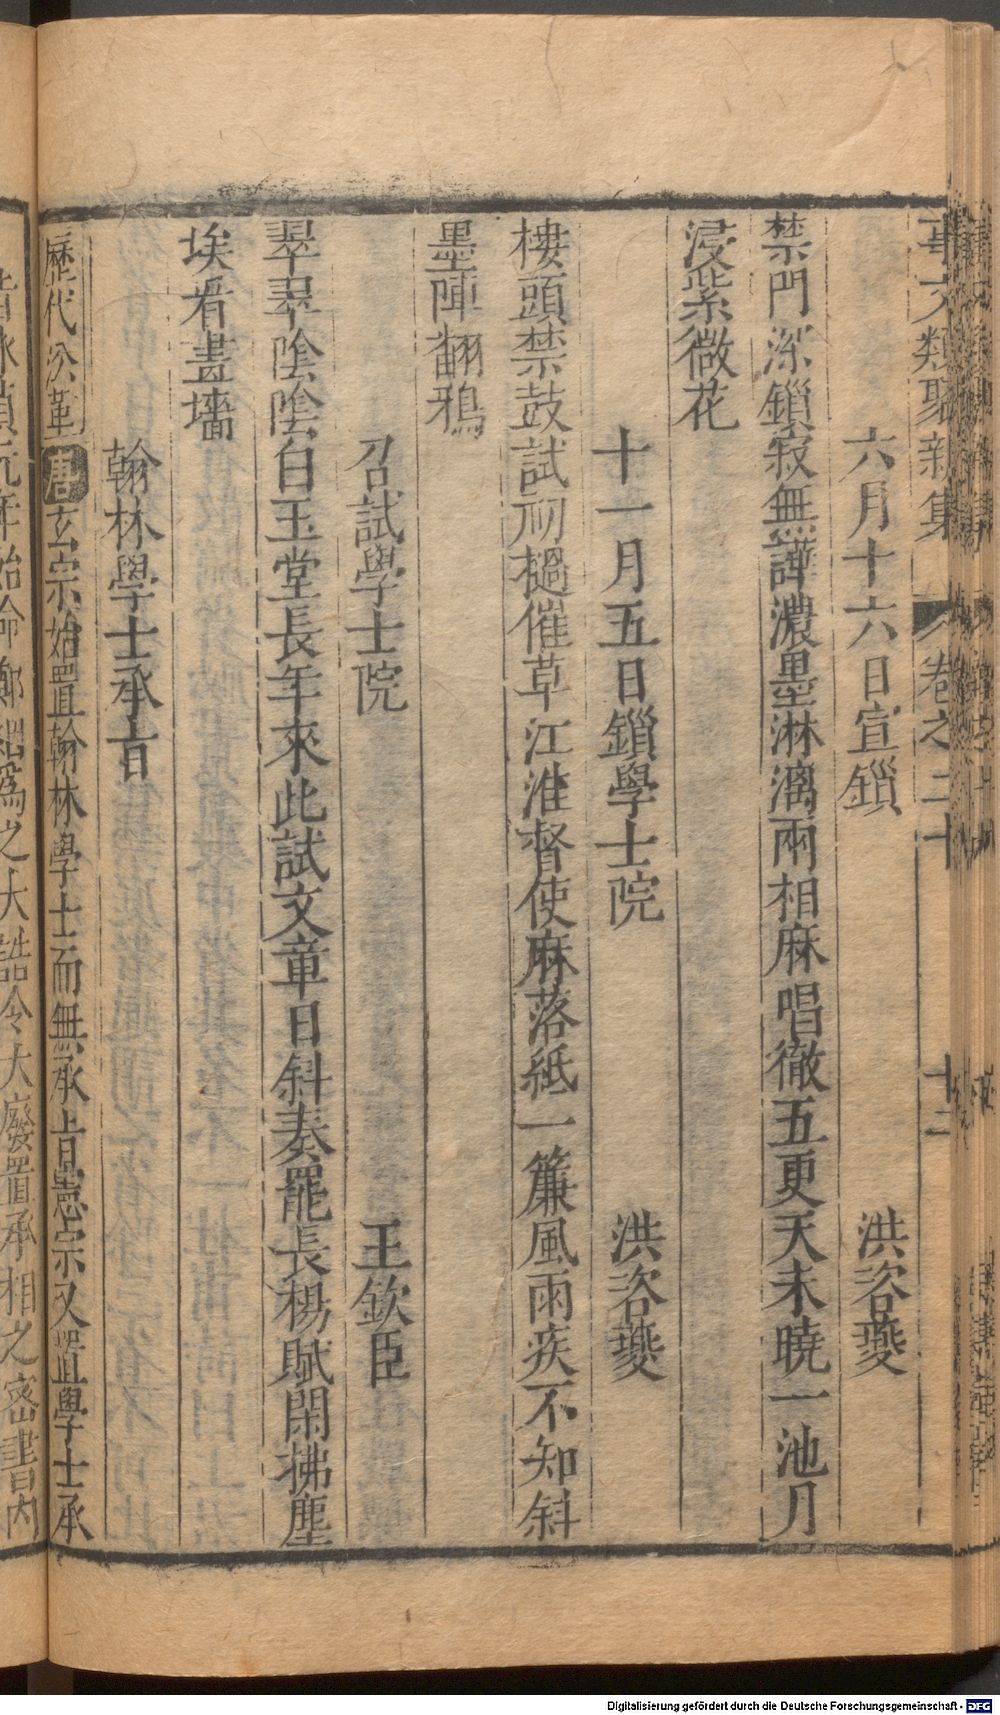 事文類聚新集 卷之二十 十二
六月十六日宣鎖 洪咨夔
禁門深鎖寂無譁濃墨淋漓兩相麻唱徹五更天未曉一池月
浸紫微花
十一月五日鎖學士院 洪咨夔
樓頭禁鼓試初撾催草江淮督使麻落紙一簾風雨疾不知斜
墨陣翻鴉
召試學士院 王欽臣
翠翠陰陰白玉堂長年來此試文章日斜奏罷長楊賦閑拂塵
埃看畫墻
翰林學士承旨
歷代沿革 唐玄宗始置翰林學士而無承旨憲宗又置學士承
旨永貞元年始命鄭絪為之大誥令大廢置承相之密書內
Digitalisierung gefördert durch die Deutsche Forschungsgemeinschaft - DFG